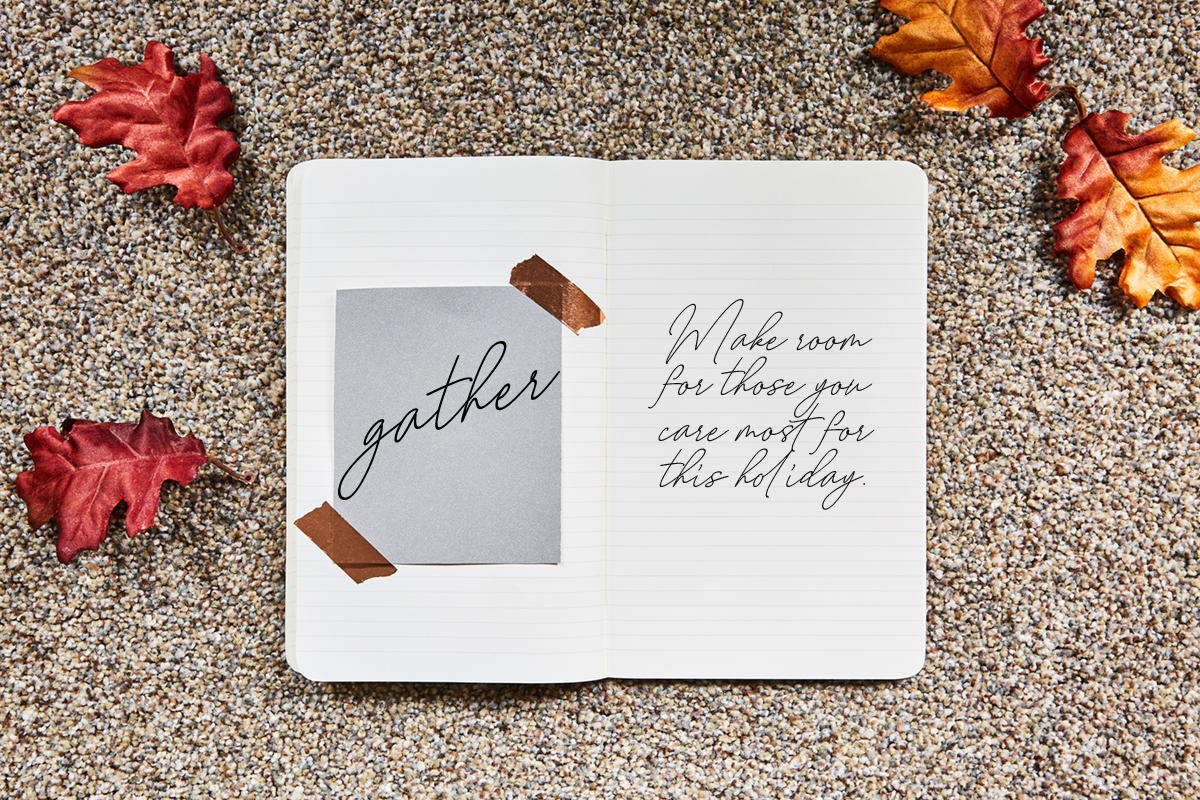 gather
Make room
for those you
care most for
this holiday.